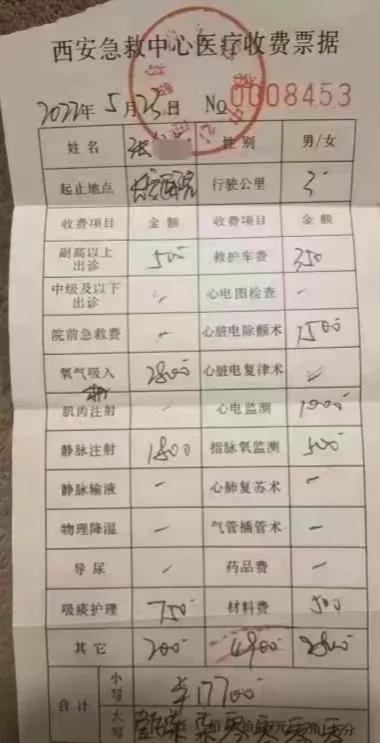 西安急救中心医疗收费票据
2022年5月23日 No 0008453
姓名 张 性别 男/女
起止地点 行驶公里 3
收费项目 金额 收费项目 金额
副高以上出诊 500 救护车费 350
中级及以下出诊 - 心电图检查 -
院前急救费 - 心脏电除颤术 1500
氧气吸入 2800 心脏电复律术
肌肉注射 - 心电监测 1000
静脉注射 1800 指脉氧监测 500
静脉输液 - 心肺复苏术 -
物理降温 - 气管插管术 -
导尿 - 药品费 -
吸痰护理 750 材料费 500
其它 200 4900
合计 小写 ¥17700
大写